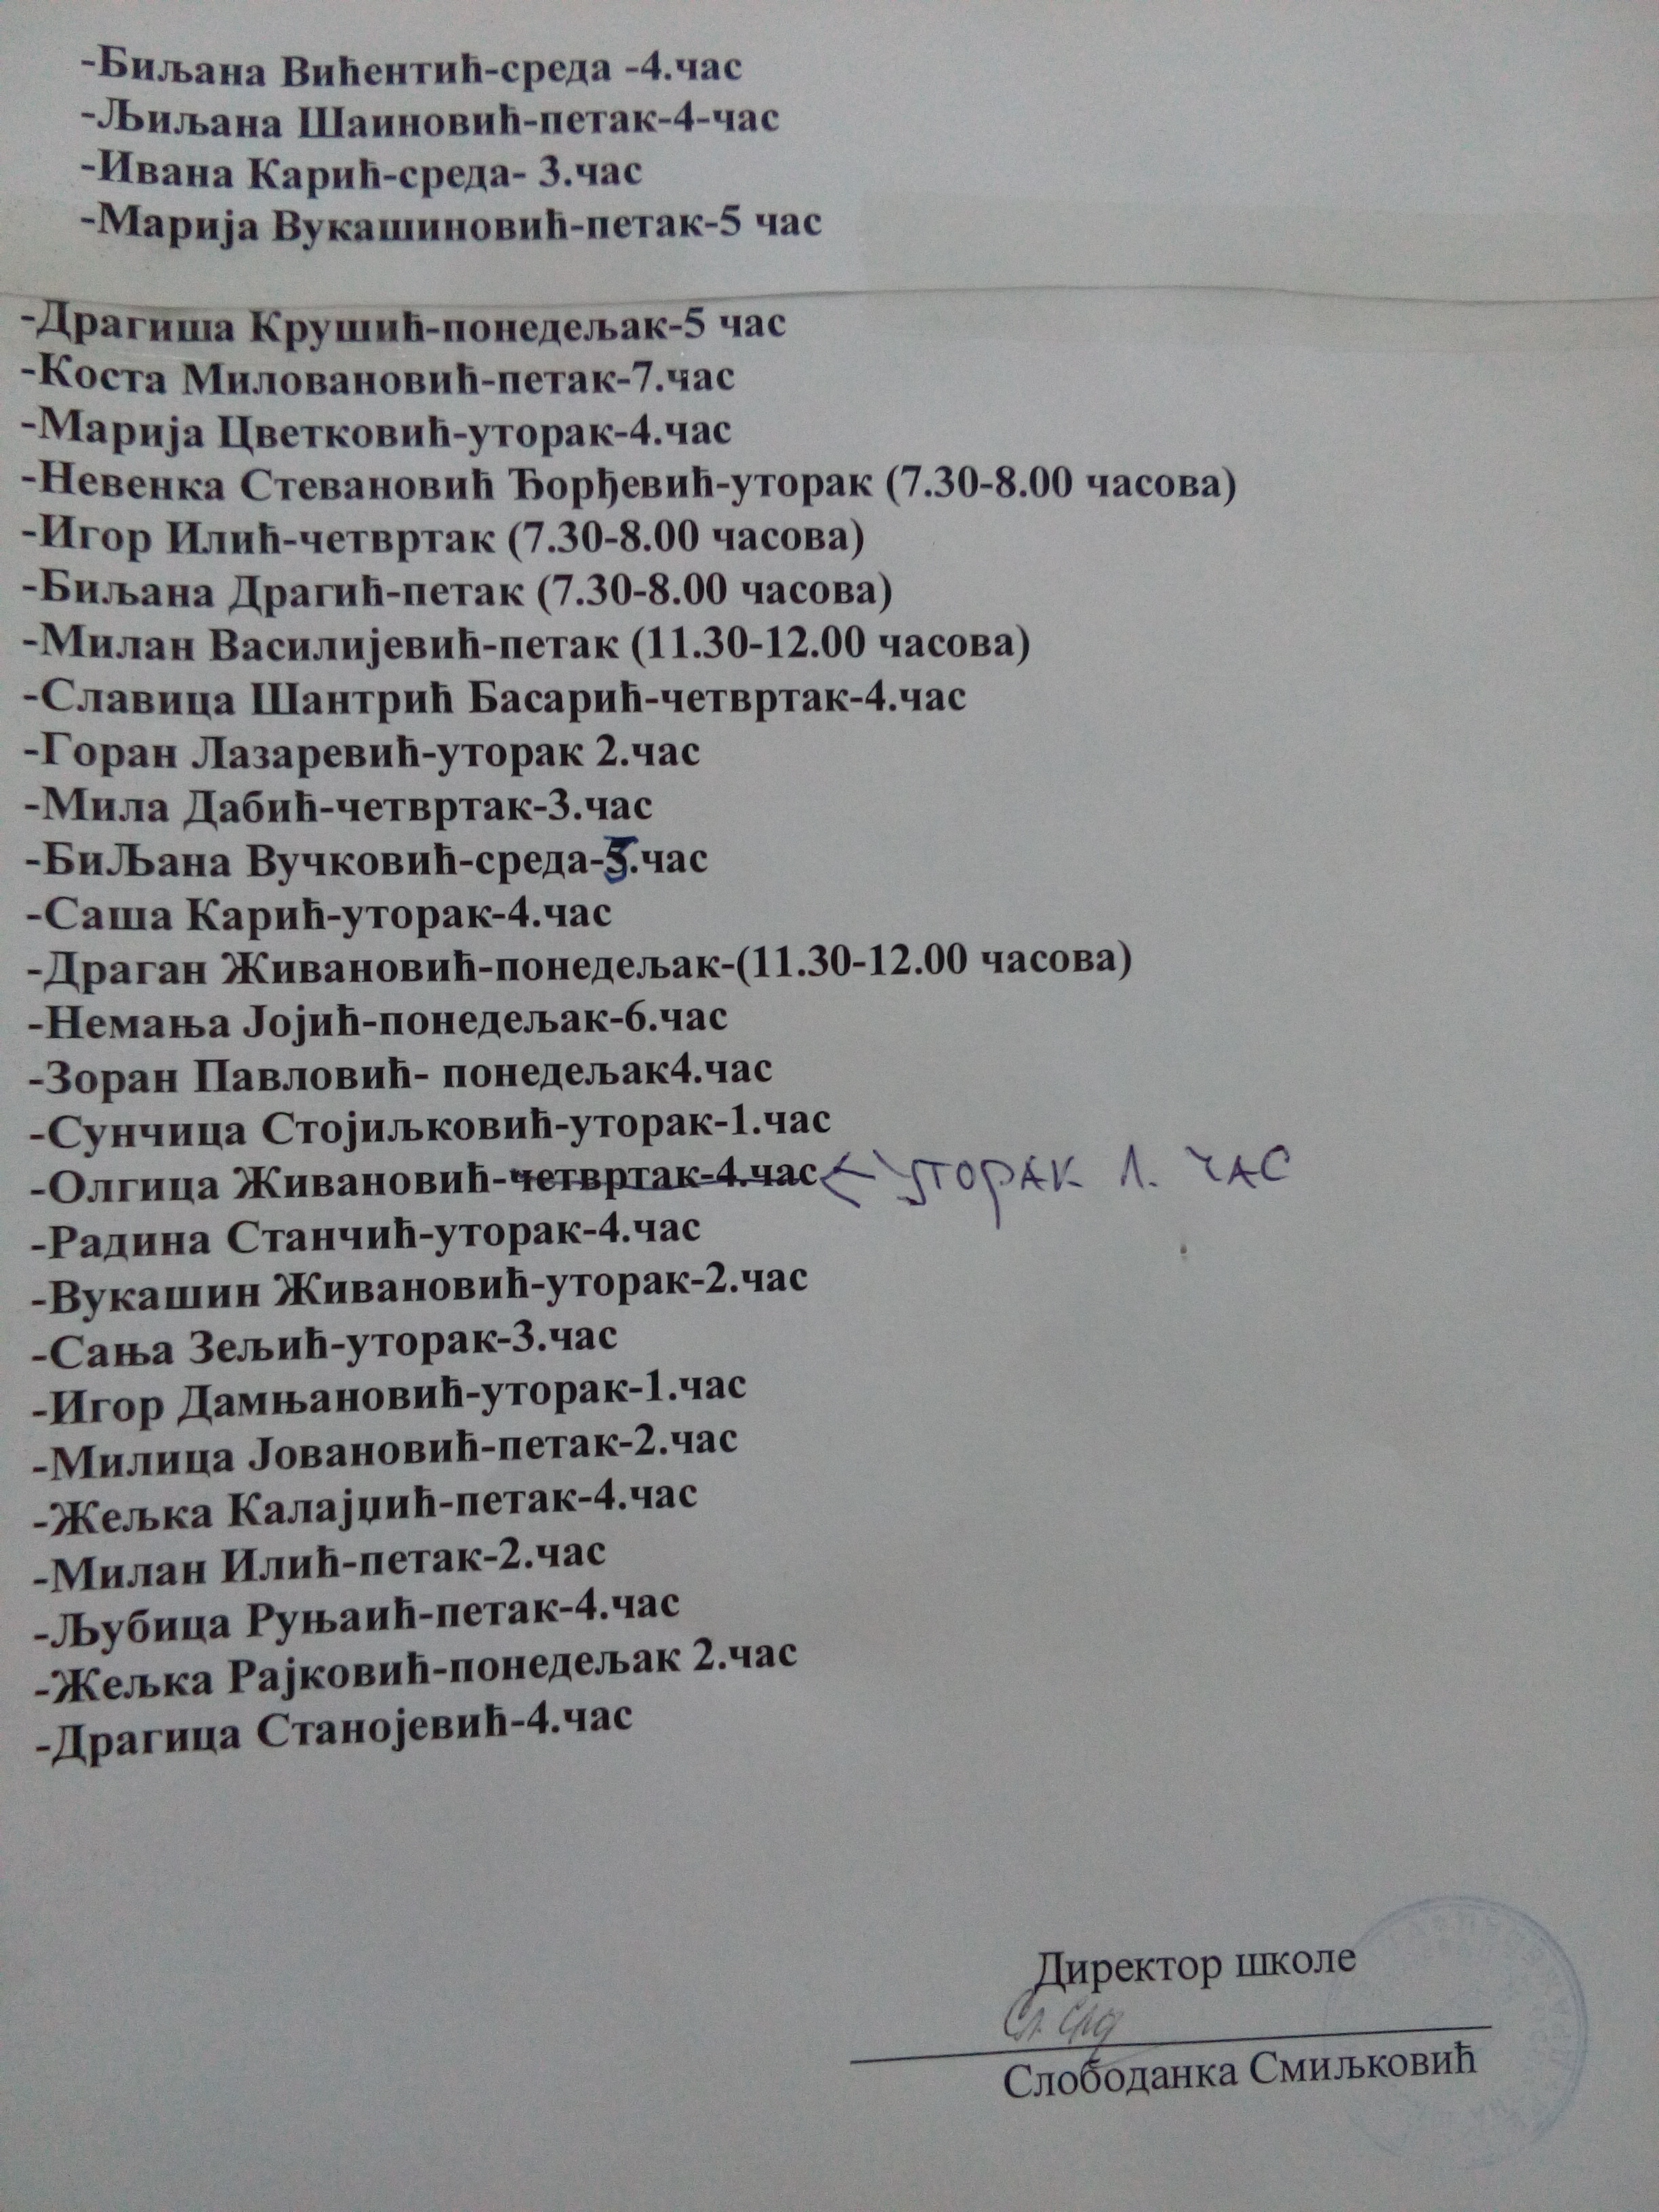 -Биљана Вићентић-среда -4.час
-Љиљана Шаиновић-петак-4-час
-Ивана Карић-среда- 3.час
-Марија Вукашиновић-петак-5 час
-Драгиша Крушић-понедељак-5 час
-Коста Миловановић-петак-7.час
-Марија Цветковић-уторак-4.час
-Невенка Стевановић Ђорђевић-уторак (7.30-8.00 часова)
-Игор Илић-четвртак (7.30-8.00 часова)
-Биљана Драгић-петак (7.30-8.00 часова)
-Милан Василијевић-петак (11.30-12.00 часова)
-Славица Шантрић Басарић-четвртак-4.час
-Горан Лазаревић-уторак 2.час
-Мила Дабић-четвртак-3.час
-БиЉана Вучковић-среда-5.час
-Саша Карић-уторак-4.час
-Драган Живановић-понедељак-(11.30-12.00 часова)
-Немања Јојић-понедељак-6.час
-Зоран Павловић- понедељак4.час
-Сунчица Стојиљковић-уторак-1.час
-Олгица Живановић-четвртак-4.час ← УТОРАК 1. ЧАС
-Радина Станчић-уторак-4.час
-Вукашин Живановић-уторак-2.час
-Сања Зељић-уторак-3.час
-Игор Дамњановић-уторак-1.час
-Милица Јовановић-петак-2.час
-Жељка Калајџић-петак-4.час
-Милан Илић-петак-2.час
-Љубица Руњаић-петак-4.час
-Жељка Рајковић-понедељак 2.час
-Драгица Станојевић-4.час
Директор школе
Слободанка Смиљковић